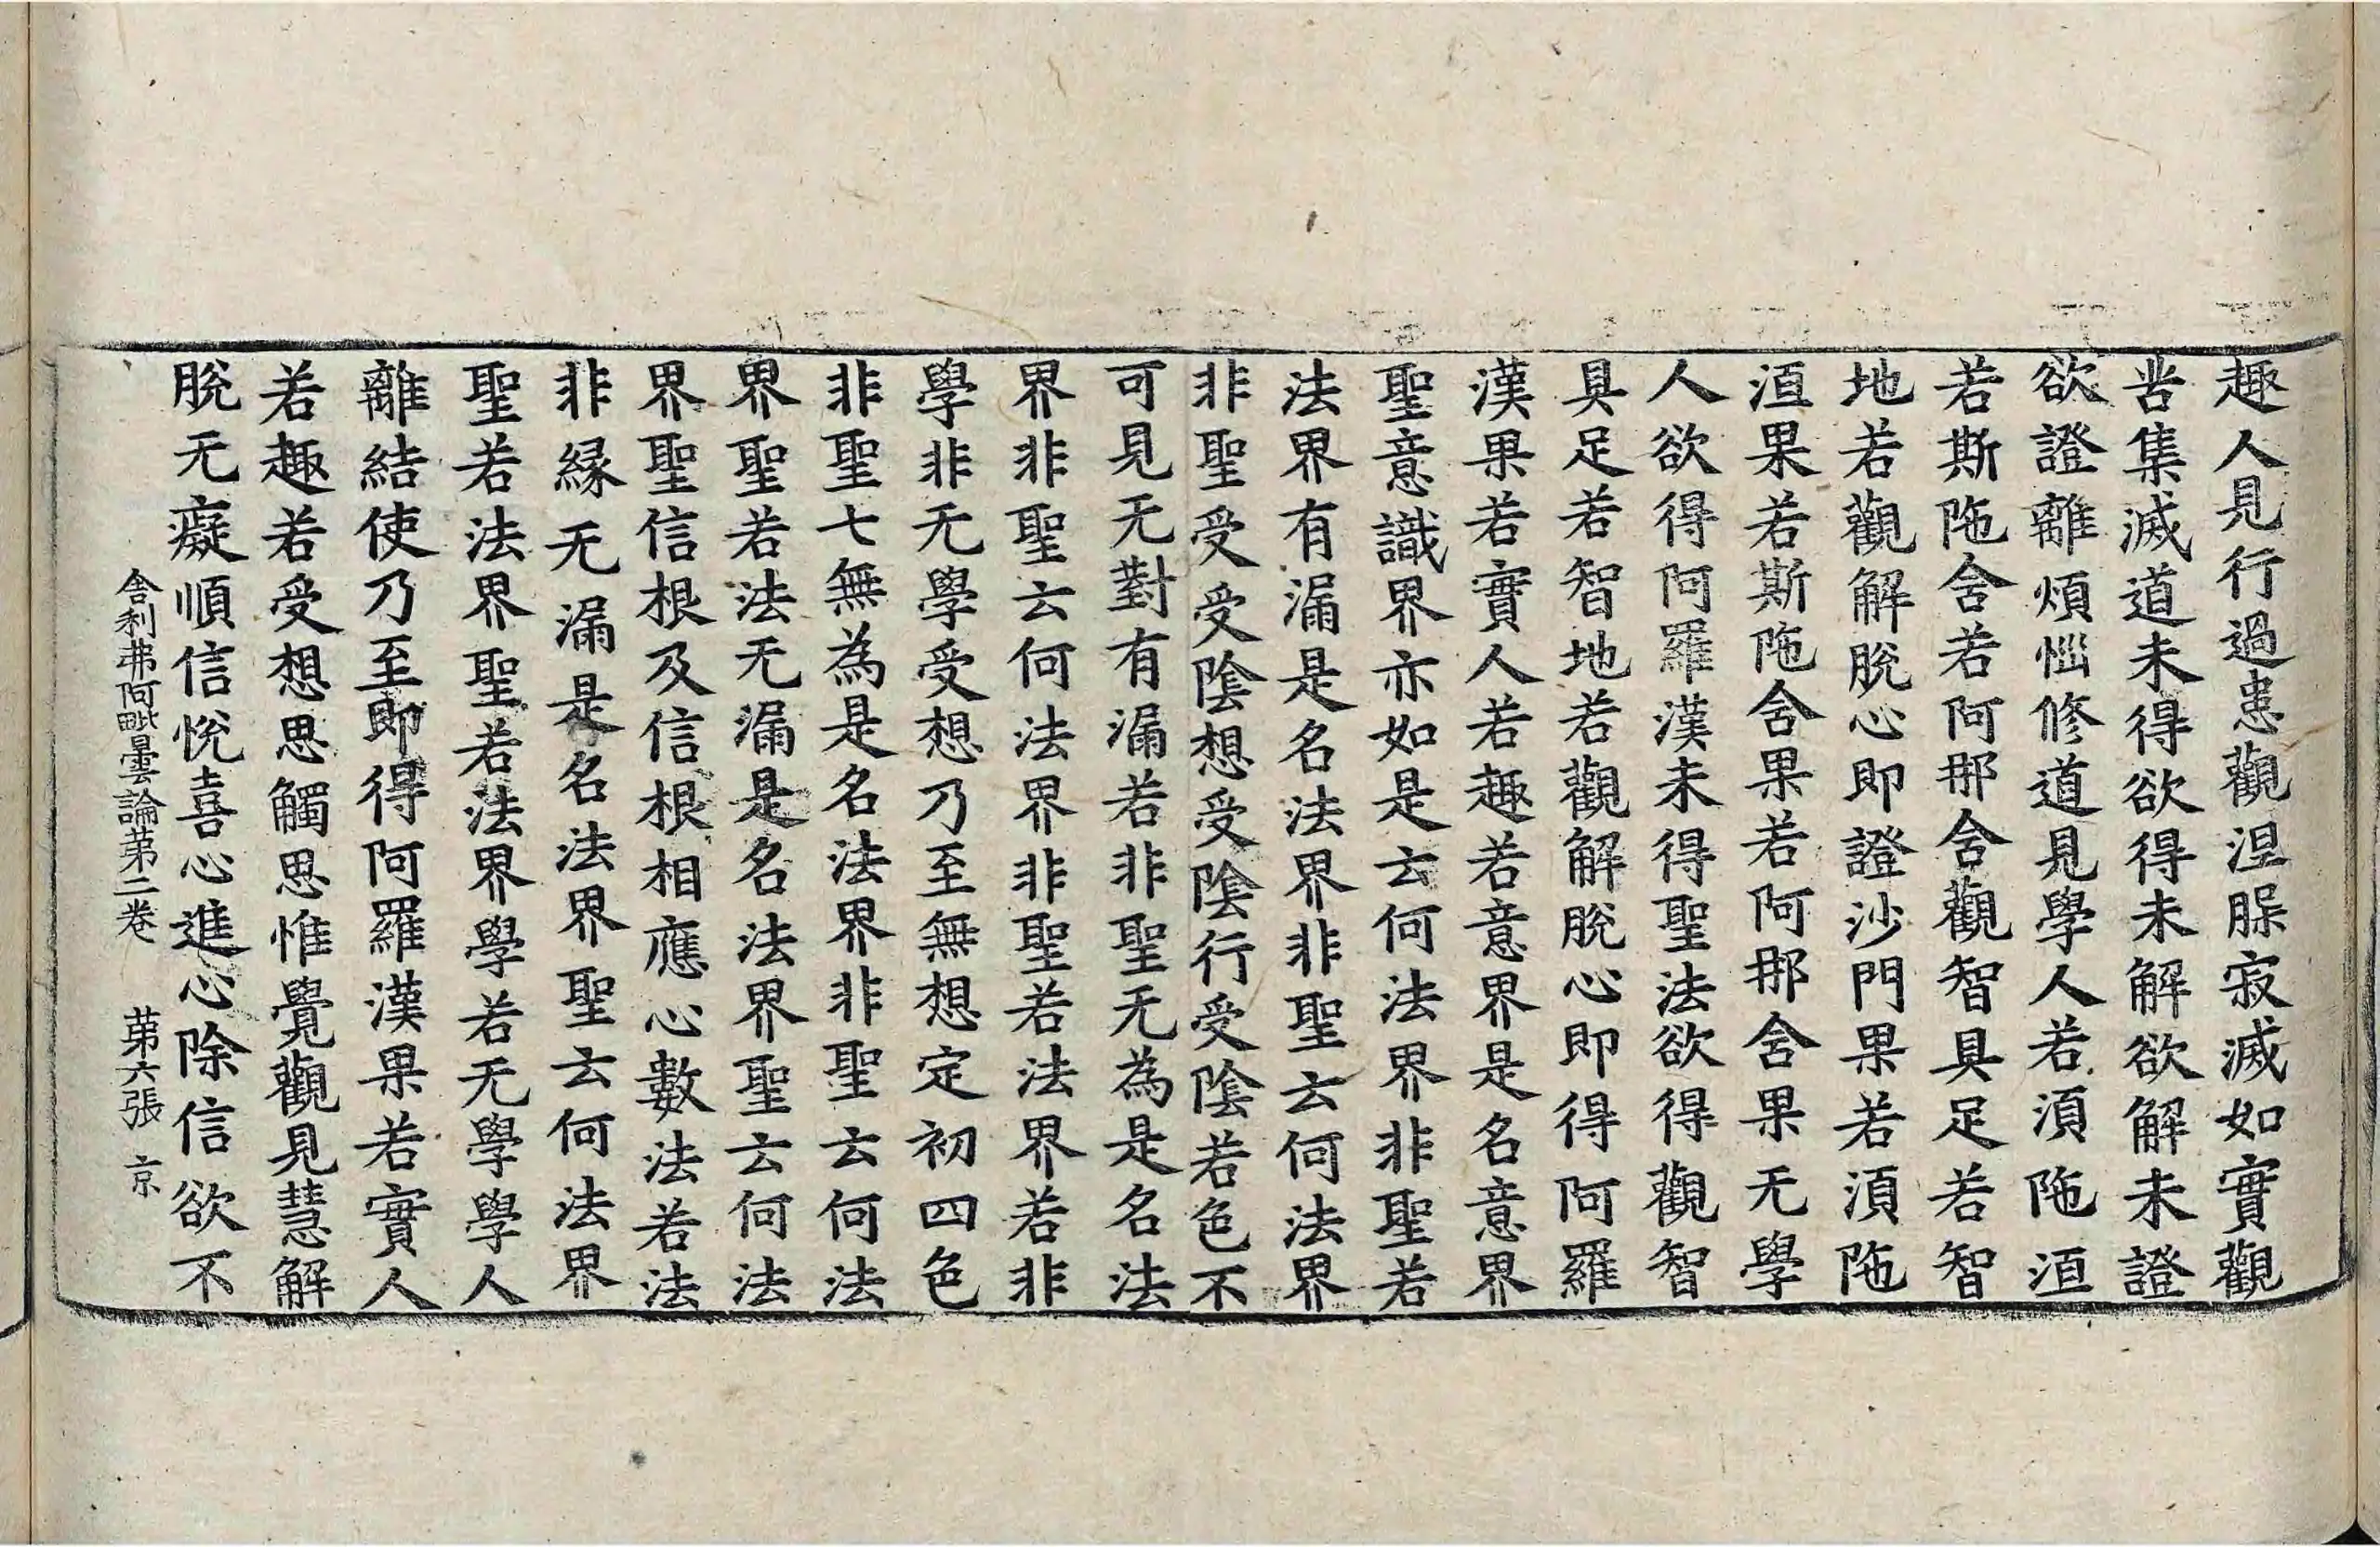 趣人見行過患觀涅䏶寂滅如實觀
苦集滅道未得欲得未解欲解未證
欲證離煩惱修道見學人若湏陁洹
若斯陁舍若阿那舍觀智具足若智
地若觀解脫心即證沙門果若湏陁
洹果若斯陁舍果若阿那舍果无學
人欲得阿羅漢未得聖法欲得觀智
具足若智地若觀解脫心即得阿羅
漢果若實人若趣若意界是名意界
聖意識界亦如是云何法界非聖若
法界有漏是名法界非聖云何法界
非聖受受陰想受陰行受陰若色不
可見无對有漏若非聖无為是名法
界非聖云何法界非聖若法界若非
學非无學受想乃至無想定初四色
非聖七無為是名法界非聖云何法
界聖若法无漏是名法界聖云何法
界聖信根及信根相應心數法若法
非緣无漏是名法界聖云何法界
聖若法界聖若法界學若无學學人
離結使乃至即得阿羅漢果若實人
若趣若受想思觸思惟覺觀見慧解
脫无癡順信悅喜心進心除信欲不
舍利弗阿毗曇論苐二卷 苐六張 京